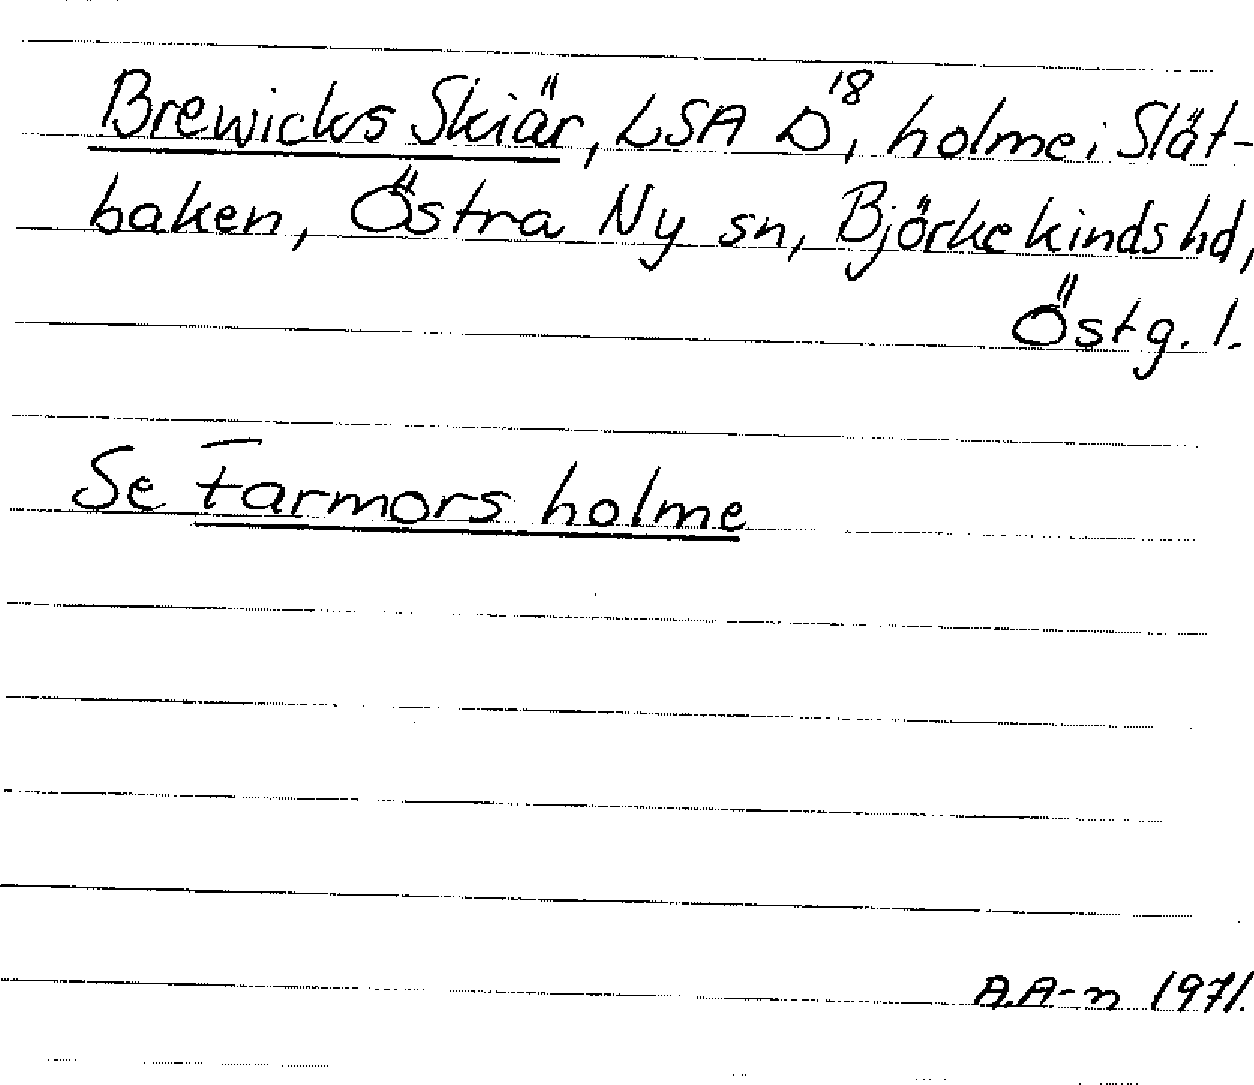 Brewicks Skiär, LSA D¹⁸, holme i Slät-
baken, Östra Ny sn, Björkekinds hd,
Östg. l.
Se Farmors holme
A.A-n 1971.